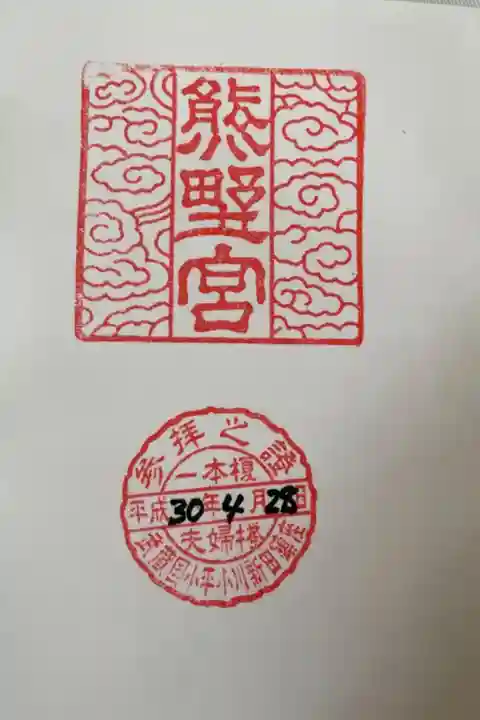 熊野宮
参拝之證
一本榎
平成30年4月28日
夫婦欅
武蔵国小平小川新田